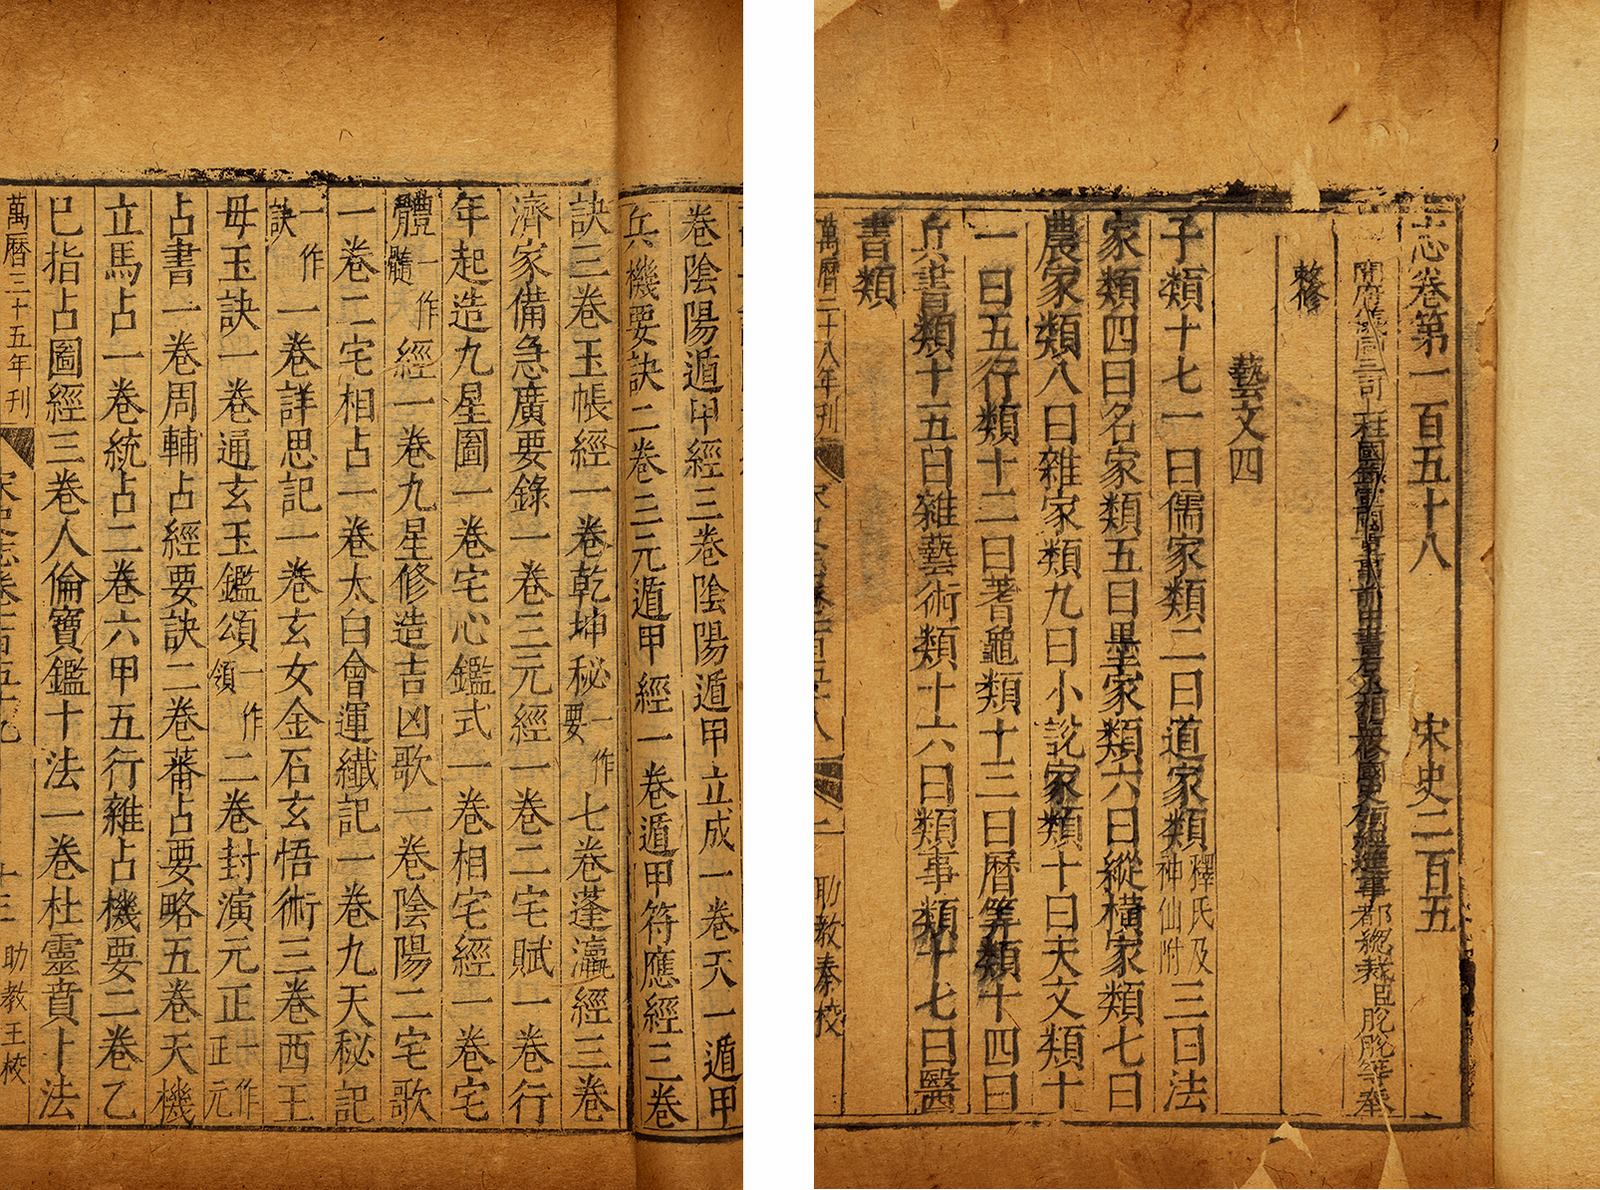 志卷第一百五十八 宋史二百五
開府儀同三司上柱國錄軍國重事前中書右丞相監修國史領經筵事都總裁臣脫脫等奉
敕修
藝文四
子類十七一曰儒家類二曰道家類釋氏及神仙附三曰法
家類四曰名家類五曰墨家類六曰縱橫家類七曰
農家類八曰雜家類九曰小說家類十曰天文類十
一曰五行類十二曰蓍龜類十三曰曆算類十四曰
兵書類十五曰雜藝術類十六曰類事類十七曰醫
書類
萬曆二十八年刊 宋史志卷一百五十八 一 助教秦校
卷陰陽遁甲經三卷陰陽遁甲立成一卷天一遁甲
兵機要訣二卷三元遁甲經一卷遁甲符應經三卷
訣三卷玉帳經一卷乾坤秘一作要七卷蓬瀛經三卷
濟家備急廣要錄一卷三元經一卷二宅賦一卷行
年起造九星圖一卷宅心鑑式一卷相宅經一卷宅
體一作髓經一卷九星修造吉凶歌一卷陰陽二宅歌
一卷二宅相占一卷太白會運纖記一卷九天秘記
一作訣一卷詳思記一卷玄女金石玄悟術三卷西王
母玉訣一卷通玄玉鑑頌一作領二卷封演元正一作正元
占書一卷周輔占經要訣二卷蕃占要略五卷天機
立馬占一卷統占二卷六甲五行雜占機要二卷乙
巳指占圖經三卷人倫寶鑑十法一卷杜靈賁卜法
萬曆三十五年刊 宋史志卷一百五十九 十三 助教王校